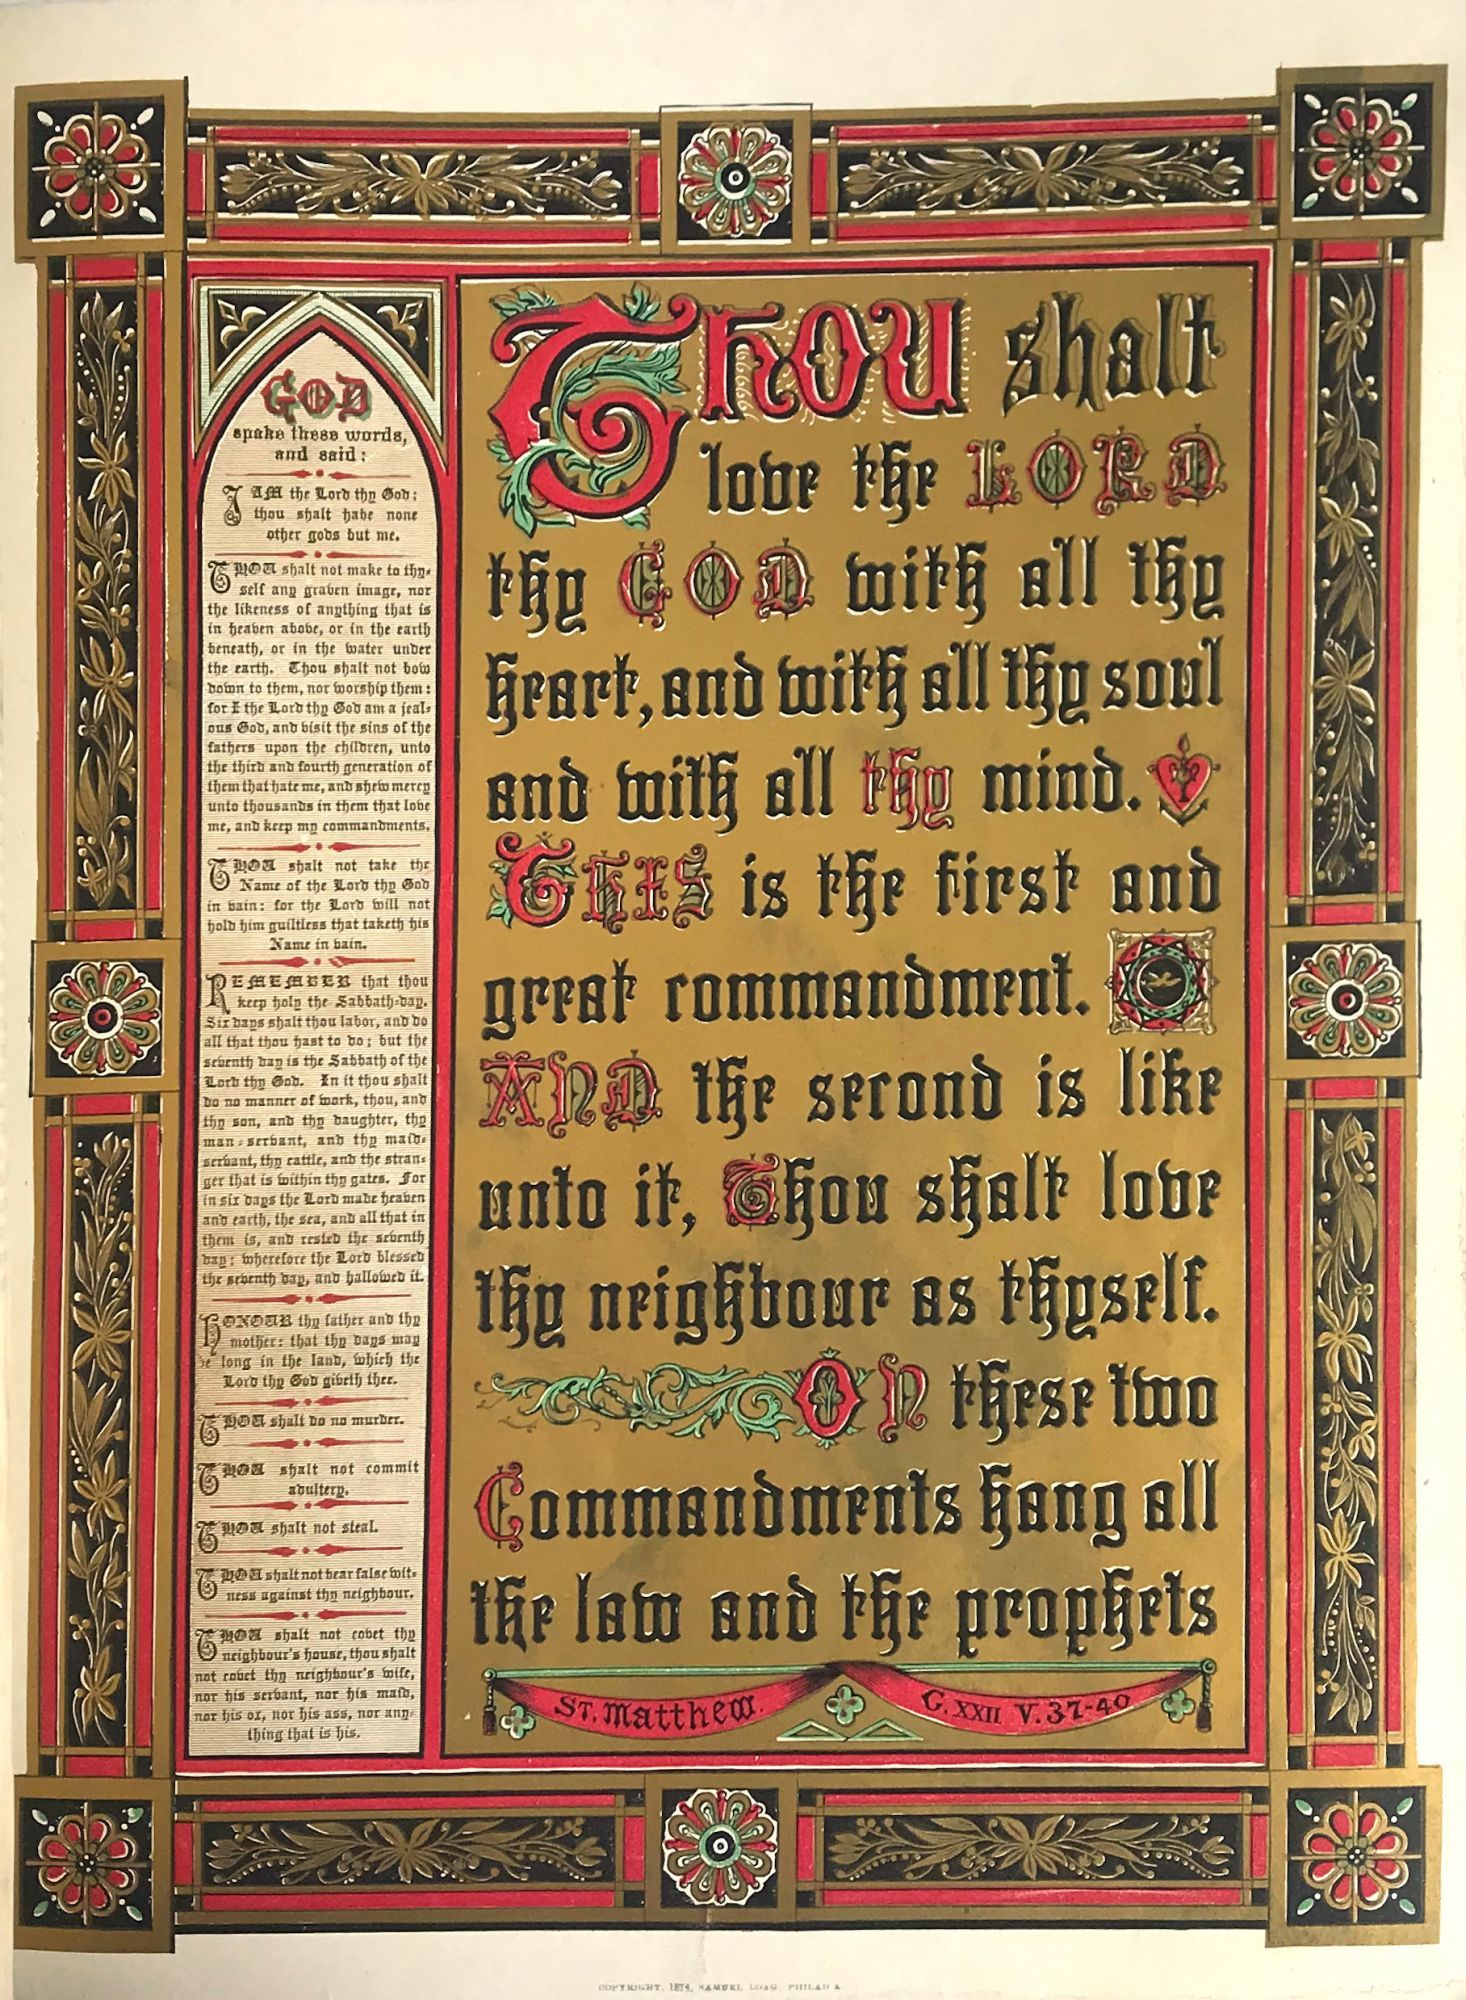 GOD
spake these words,
and said:
I AM the Lord thy God:
thou shalt have none
other gods but me.
THOU shalt not make to thy-
self any graven image, nor
the likeness of anything that is
in heaven above, or in the earth
beneath, or in the water under
the earth. Thou shalt not bow
down to them, nor worship them:
for I the Lord thy God am a jeal-
ous God, and visit the sins of the
fathers upon the children, unto
the third and fourth generation of
them that hate me, and shew mercy
unto thousands in them that love
me, and keep my commandments.
THOU shalt not take the
Name of the Lord thy God
in vain: for the Lord will not
hold him guiltless that taketh his
Name in vain.
REMEMBER that thou
keep holy the Sabbath-day.
Six days shalt thou labor, and do
all that thou hast to do; but the
seventh day is the Sabbath of the
Lord thy God. In it thou shalt
do no manner of work, thou, and
thy son, and thy daughter, thy
man-servant, and thy maid-
servant, thy cattle, and the stran-
ger that is within thy gates. For
in six days the Lord made heaven
and earth, the sea, and all that in
them is, and rested the seventh
day: wherefore the Lord blessed
the seventh day, and hallowed it.
HONOUR thy father and thy
mother: that thy days may
be long in the land, which the
Lord thy God giveth thee.
THOU shalt do no murder.
THOU shalt not commit
adultery.
THOU shalt not steal.
THOU shalt not bear false wit-
ness against thy neighbour.
THOU shalt not covet thy
neighbour's house, thou shalt
not covet thy neighbour's wife,
nor his servant, nor his maid,
nor his ox, nor his ass, nor any-
thing that is his.
Thou shalt
love the LORD
thy GOD with all thy
heart, and with all thy soul
and with all thy mind.
THIS is the first and
great commandment.
AND the second is like
unto it, Thou shalt love
thy neighbour as thyself.
ON these two
Commandments hang all
the law and the prophets
ST. Matthew. C. XXII V. 37-40
COPYRIGHT, 1874, SAMUEL LOAG, PHILAD'A.